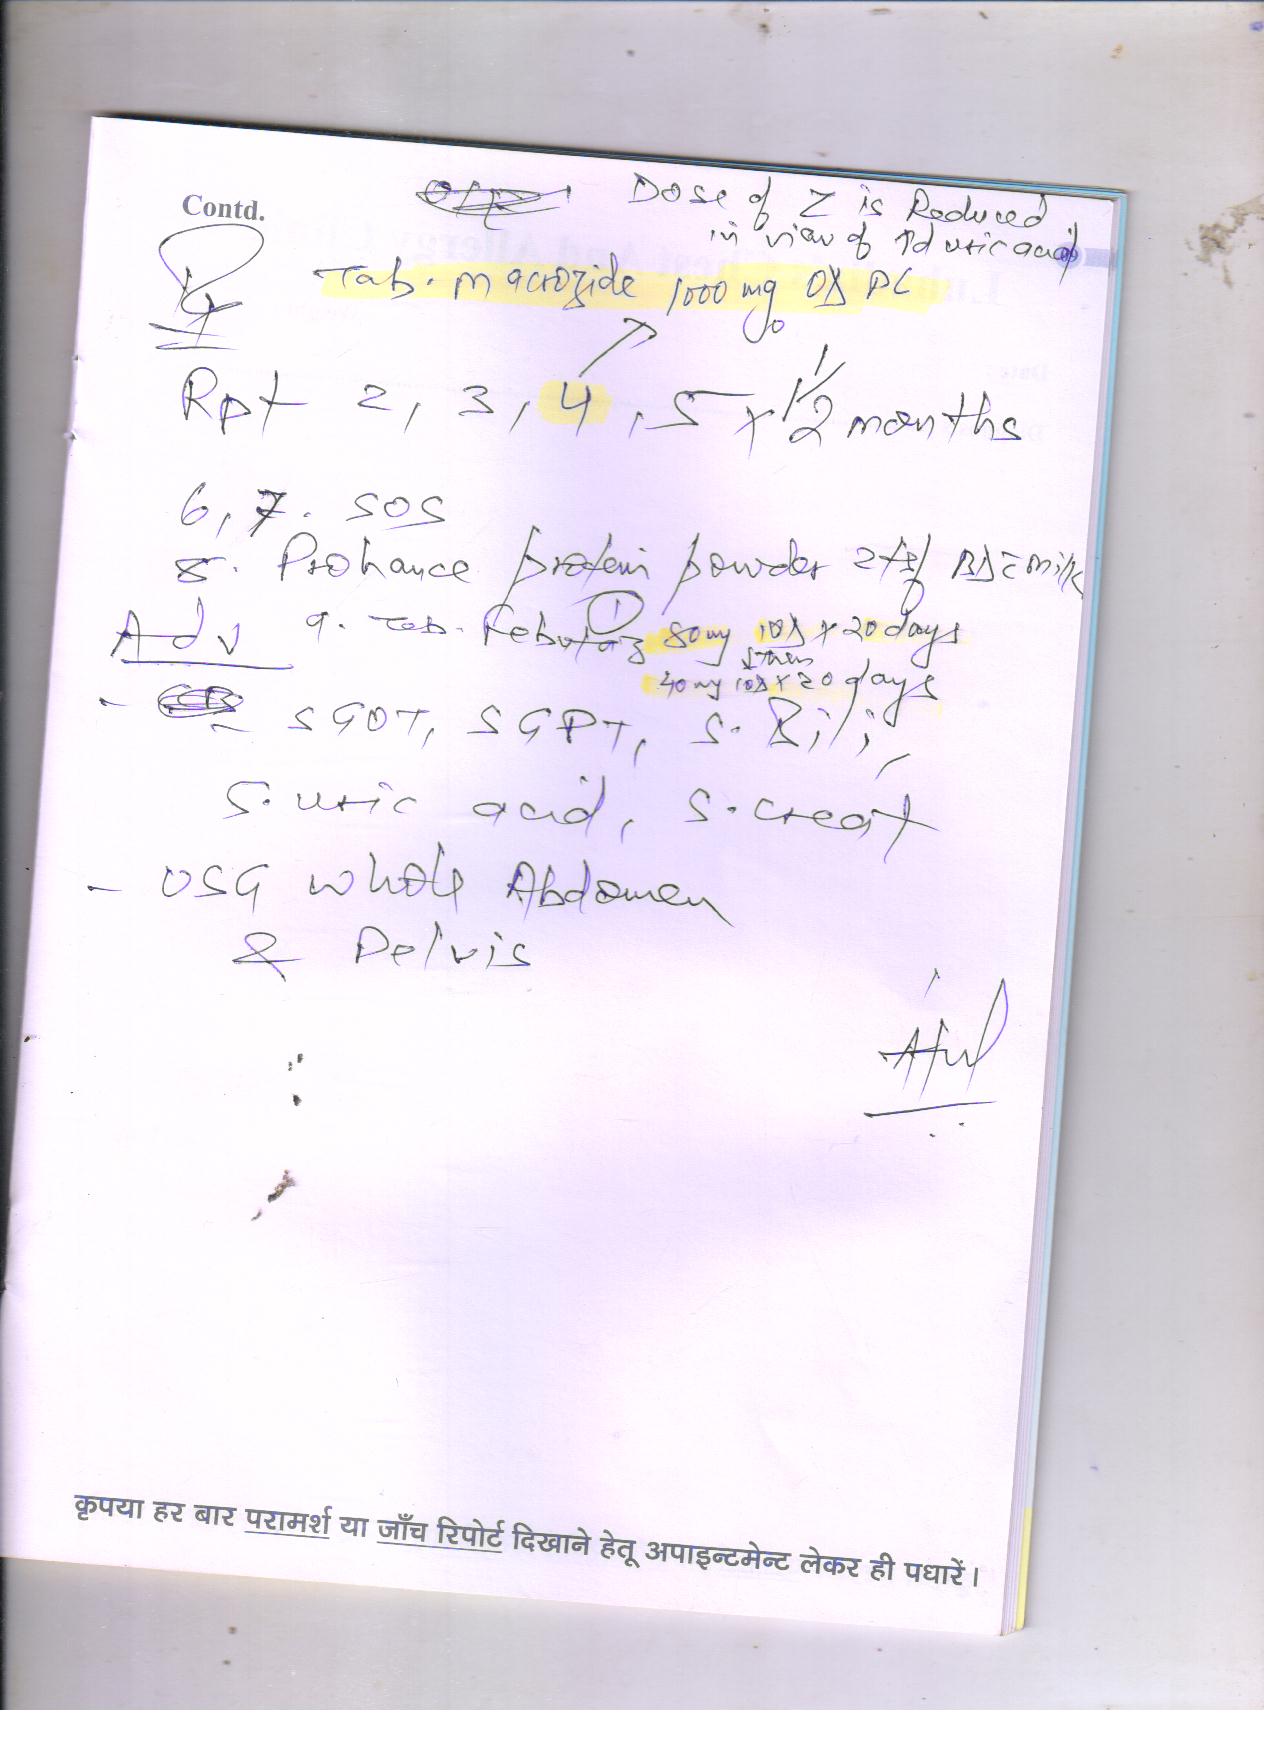 Contd.
Dose of Z is Reduced
in view of ↑d uric acid
Rx
Tab. Macrozide 1000 mg OD PC
Rpt 2, 3, 4, 5 x 1 1/2 months
6, 7. SOS
8. Prohance protein powder 2 tsf BD c̄ milk
Adv
9. Tab. Febutaz 80 mg 1OD x 20 days
↓ then
40 mg 1OD x 20 days
- SGOT, SGPT, S. Bili,
S. uric acid, S. creat
- USG Whole Abdomen
& Pelvis
कृपया हर बार परामर्श या जाँच रिपोर्ट दिखाने हेतू अपाइन्टमेन्ट लेकर ही पधारें।